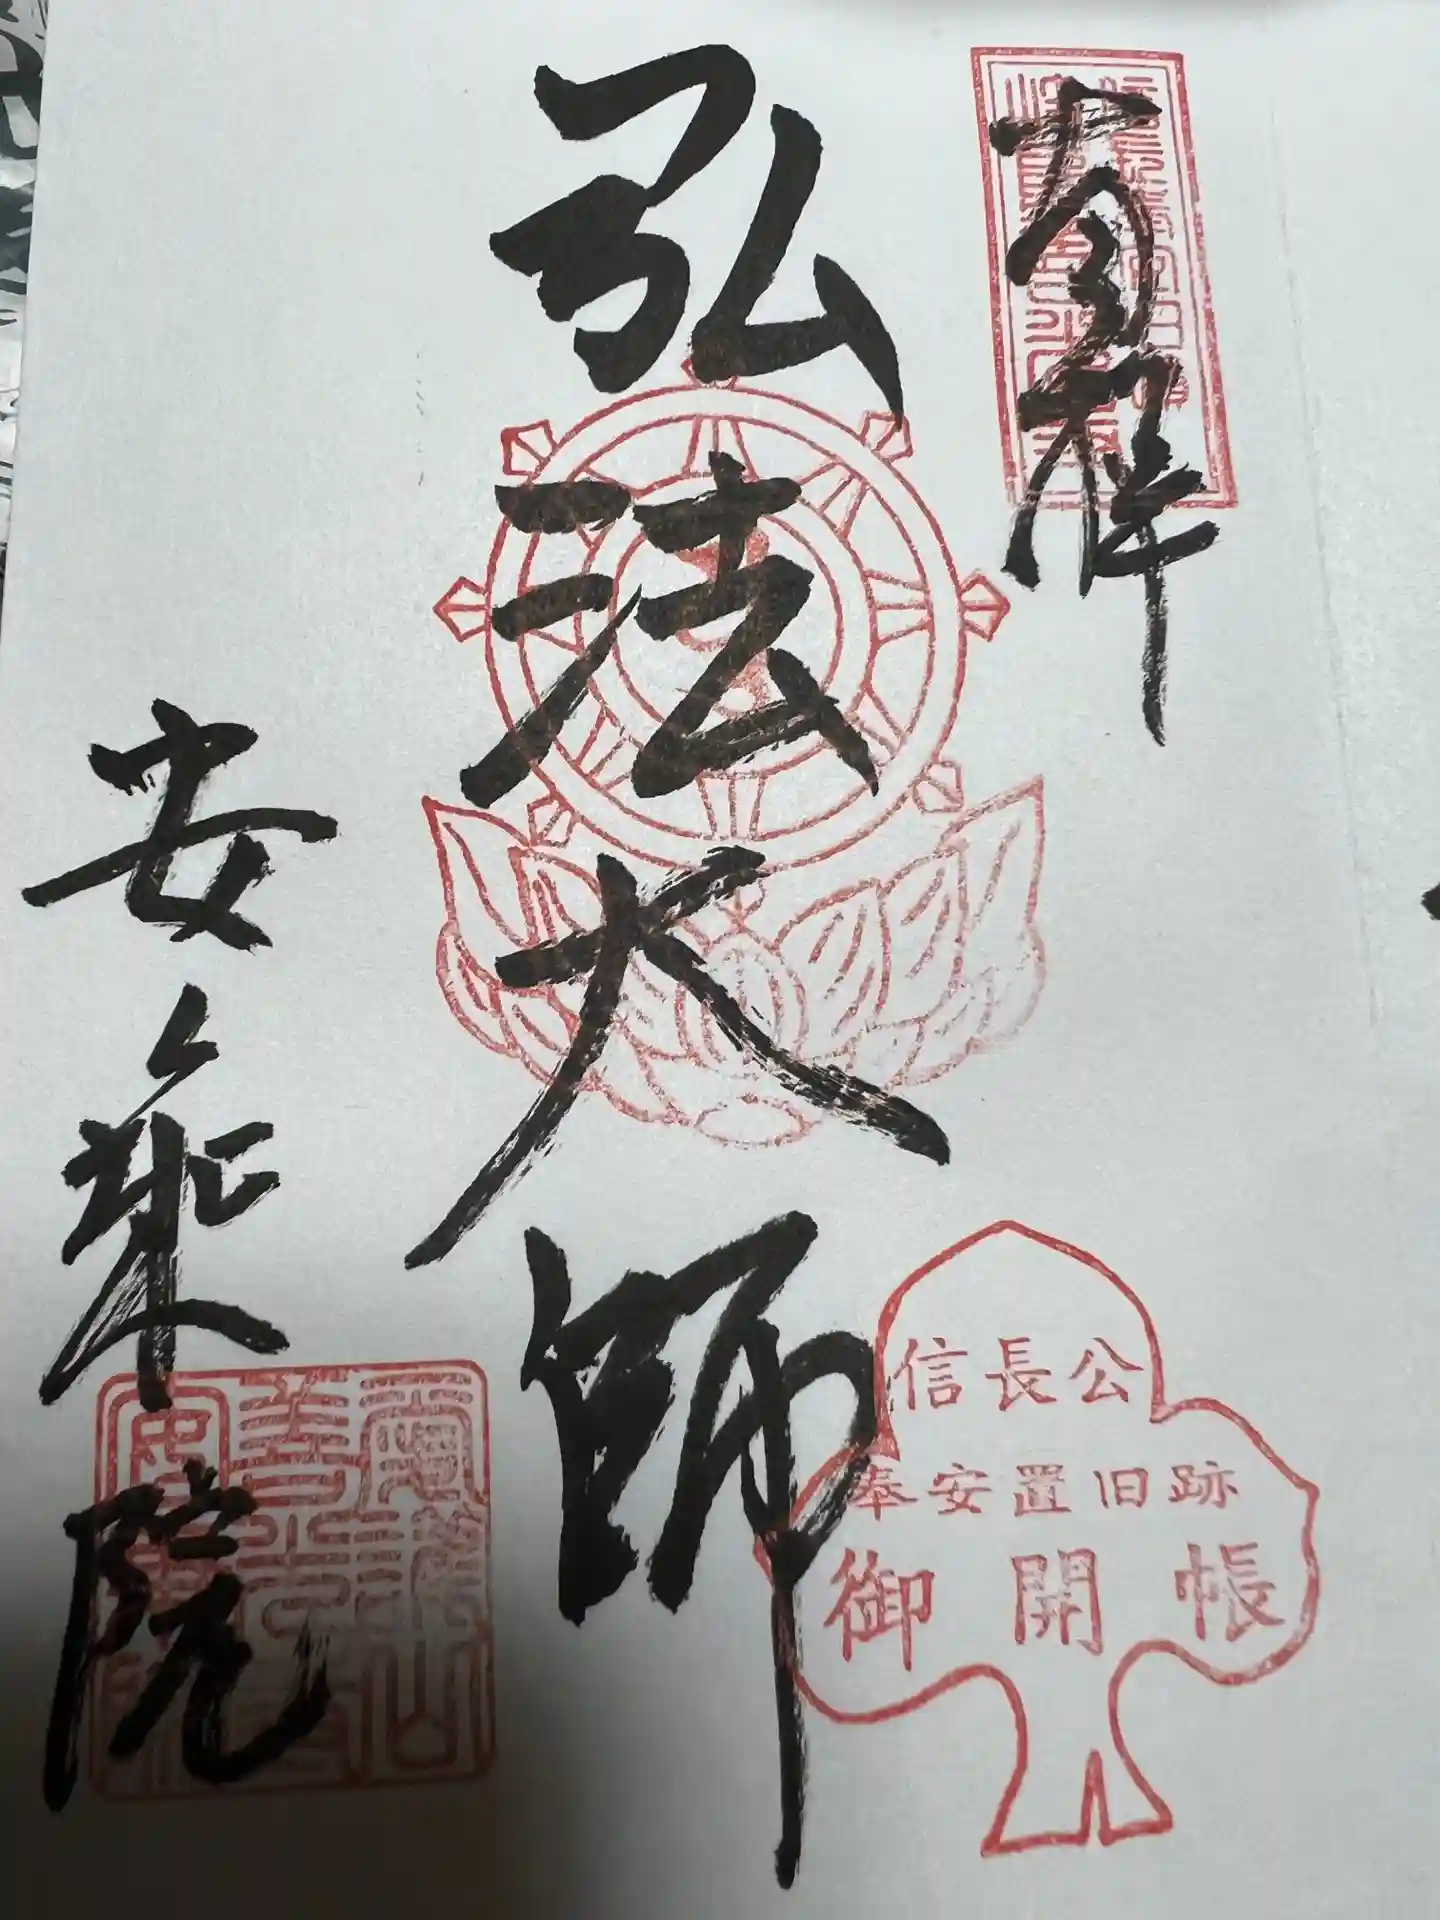 弘法大師
安乘院
信長公
奉安置旧跡
御開帳